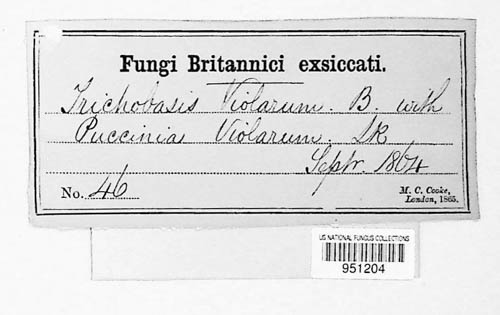 Fungi Britannici exsiccati.
Trichobasis Violarum. B. with
Puccinia Violarum. Lk
Septr. 1864
No. 46
M. C. Cooke,
London, 1865.
US NATIONAL FUNGUS COLLECTIONS
951204